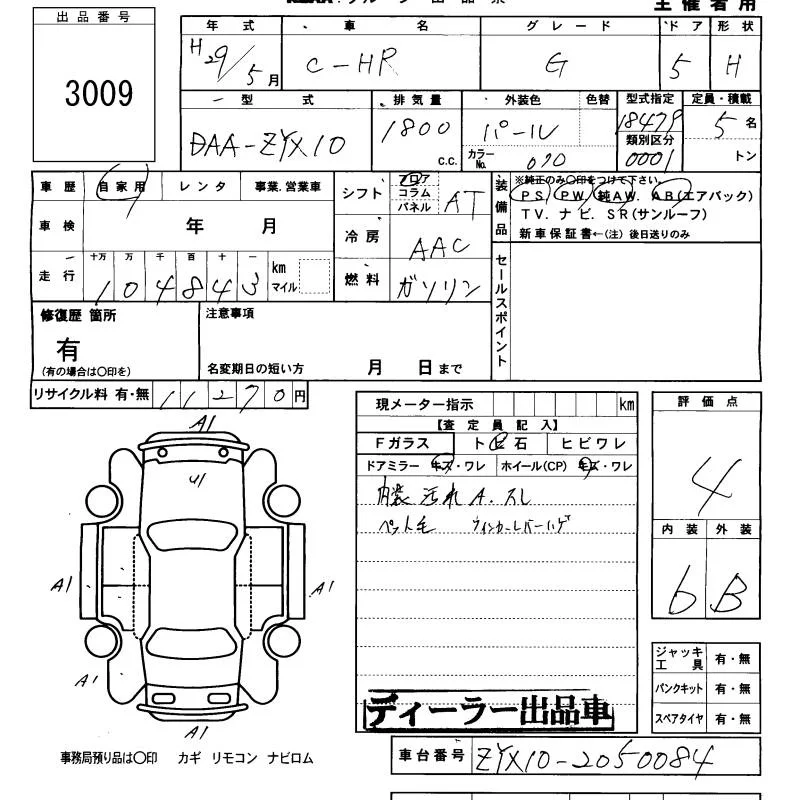 主催者用
出品番号
3009
年式 車名 グレード ドア 形状
H 29/5月 C-HR G 5 H
型式 排気量 外装色 色替 型式指定 定員・積載
DAA-ZYX10 1800 c.c. パール 18479 5名
カラーNo. 070 類別区分 0001 トン
車歴 自家用 レンタ 事業.営業車
シフト フロア コラム パネル AT
装備品 ※純正のみ〇印をつけて下さい。
PS. PW. 純AW. AB(エアバック)
TV. ナビ. SR(サンルーフ)
新車保証書←(注) 後日送りのみ
車検 年 月
冷房 AAC
走行 十万 万 千 百 十 一 km マイル
104843
燃料 ガソリン
セールスポイント
修復歴 箇所
有
(有の場合は〇印を)
注意事項
名変期日の短い方 月 日まで
リサイクル料 有・無 11270円
現メーター指示 km
【査定員記入】
Fガラス トビ石 ヒビワレ
ドアミラー キズ・ワレ ホイール(CP) キズ・ワレ
内装 汚れ A.スレ
ペット毛 ウィンカーレバーハゲ
評価点
4
内装 外装
6 B
A1
A1
A1
A1
A1
ジャッキ工具 有・無
パンクキット 有・無
スペアタイヤ 有・無
ディーラー出品車
事務局預り品は〇印 カギ リモコン ナビロム
車台番号 ZYX10-2050084